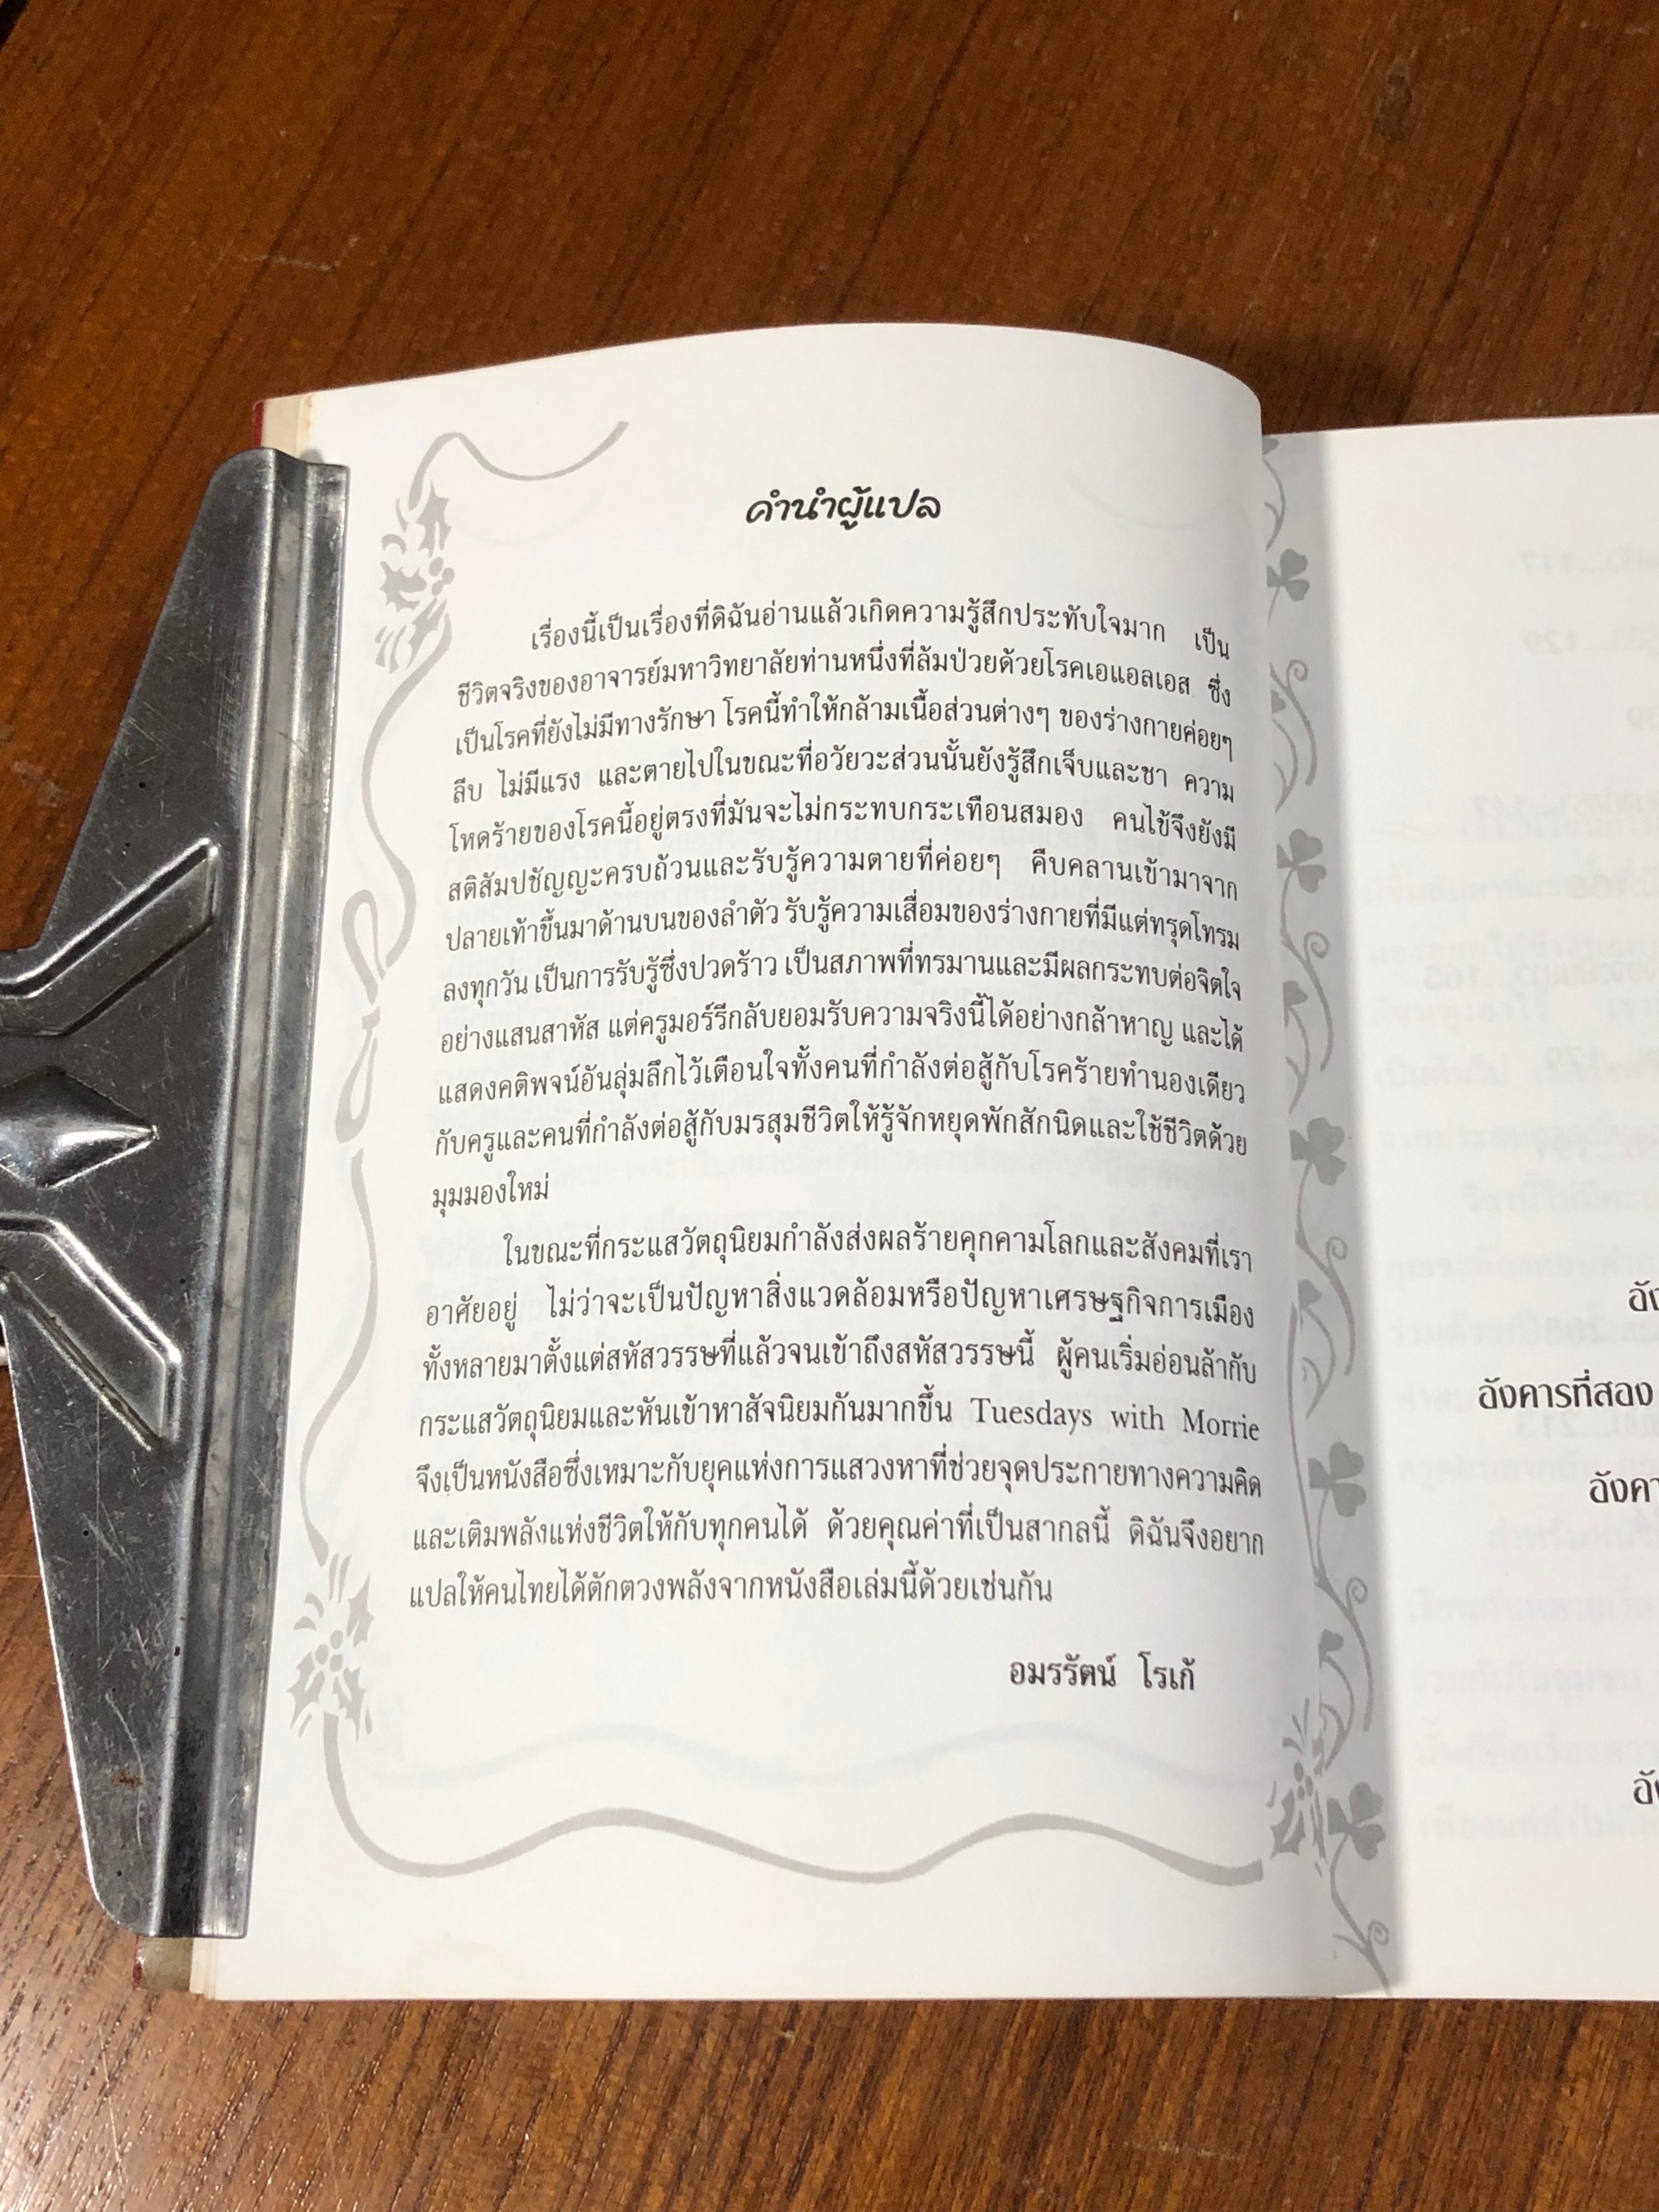 คำนำผู้แปล
เรื่องนี้เป็นเรื่องที่ดิฉันอ่านแล้วเกิดความรู้สึกประทับใจมาก เป็น
ชีวิตจริงของอาจารย์มหาวิทยาลัยท่านหนึ่งที่ล้มป่วยด้วยโรคเอแอลเอส ซึ่ง
เป็นโรคที่ยังไม่มีทางรักษา โรคนี้ทำให้กล้ามเนื้อส่วนต่างๆ ของร่างกายค่อยๆ
ลีบ ไม่มีแรง และตายไปในขณะที่อวัยวะส่วนนั้นยังรู้สึกเจ็บและชา ความ
โหดร้ายของโรคนี้อยู่ตรงที่มันจะไม่กระทบกระเทือนสมอง คนไข้จึงยังมี
สติสัมปชัญญะครบถ้วนและรับรู้ความตายที่ค่อยๆ คืบคลานเข้ามาจาก
ปลายเท้าขึ้นมาด้านบนของลำตัว รับรู้ความเสื่อมของร่างกายที่มีแต่ทรุดโทรม
ลงทุกวัน เป็นการรับรู้ซึ่งปวดร้าว เป็นสภาพที่ทรมานและมีผลกระทบต่อจิตใจ
อย่างแสนสาหัส แต่ครูมอร์รีกลับยอมรับความจริงนี้ได้อย่างกล้าหาญ และได้
แสดงคติพจน์อันลุ่มลึกไว้เตือนใจทั้งคนที่กำลังต่อสู้กับโรคร้ายทำนองเดียว
กับครูและคนที่กำลังต่อสู้กับมรสุมชีวิตให้รู้จักหยุดพักสักนิดและใช้ชีวิตด้วย
มุมมองใหม่
ในขณะที่กระแสวัตถุนิยมกำลังส่งผลร้ายคุกคามโลกและสังคมที่เรา
อาศัยอยู่ ไม่ว่าจะเป็นปัญหาสิ่งแวดล้อมหรือปัญหาเศรษฐกิจการเมือง
ทั้งหลายมาตั้งแต่สหัสวรรษที่แล้วจนเข้าถึงสหัสวรรษนี้ ผู้คนเริ่มอ่อนล้ากับ
กระแสวัตถุนิยมและหันเข้าหาสัจนิยมกันมากขึ้น Tuesdays with Morrie
จึงเป็นหนังสือซึ่งเหมาะกับยุคแห่งการแสวงหาที่ช่วยจุดประกายทางความคิด
และเติมพลังแห่งชีวิตให้กับทุกคนได้ ด้วยคุณค่าที่เป็นสากลนี้ ดิฉันจึงอยาก
แปลให้คนไทยได้ตักตวงพลังจากหนังสือเล่มนี้ด้วยเช่นกัน
อมรรัตน์ โรเก้
อังคารที่สอง